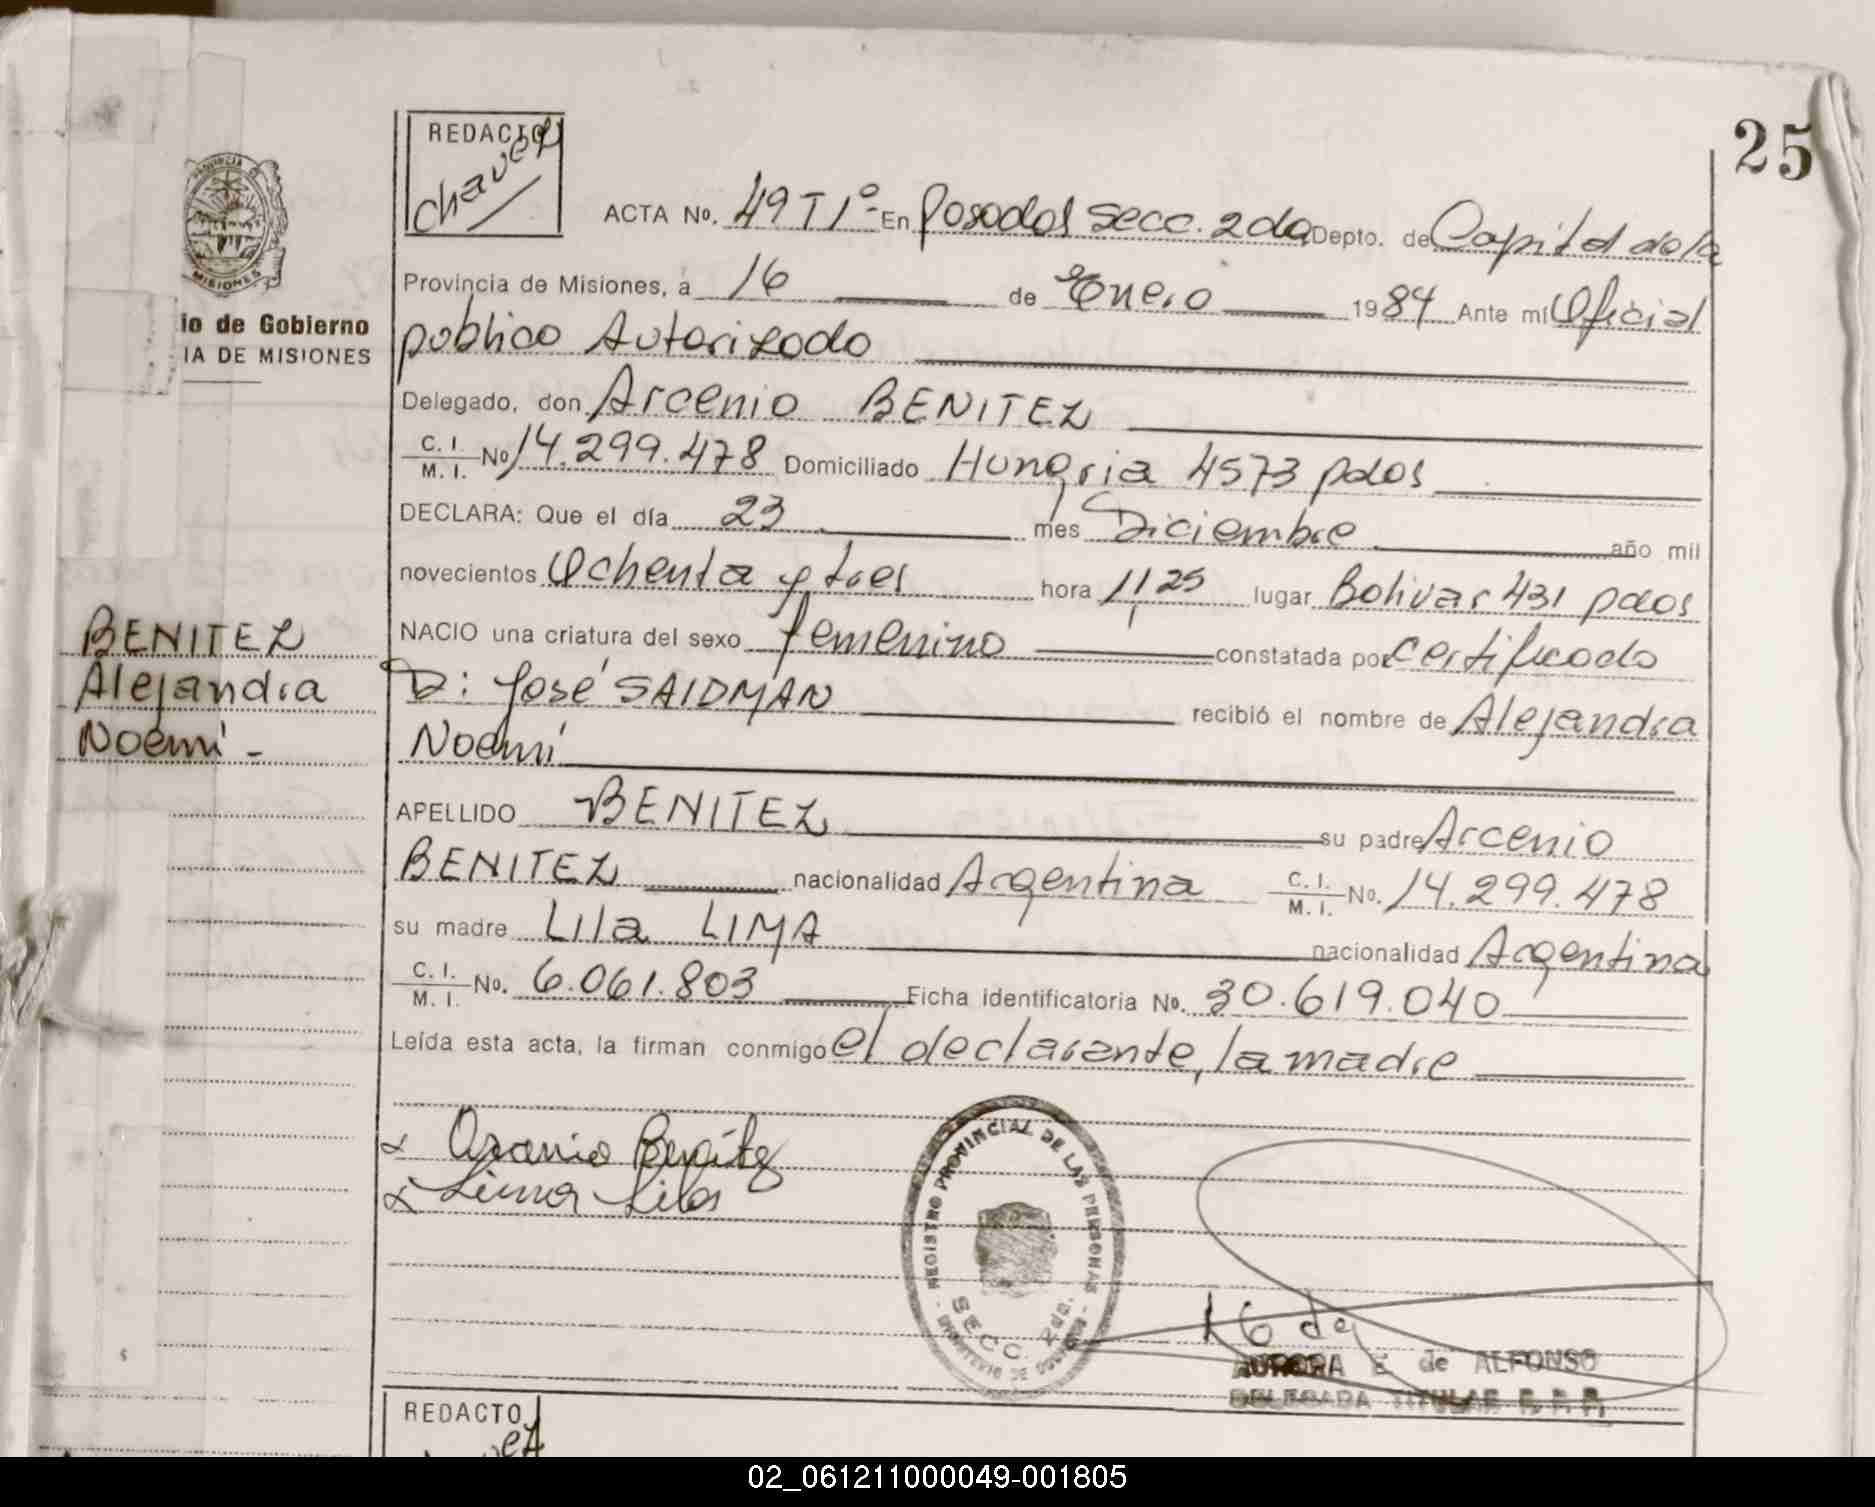 25
REDACTO
Chavez
ACTA No. 49 T1º- En Posadas Secc. 2da Depto. de Capital de la
Provincia de Misiones, a 16 de Enero 1984 Ante mí Oficial
público Autorizado
io de Gobierno
IA DE MISIONES
PROVINCIA
MISIONES
Delegado, don Arcenio BENITEZ
C. I.
M. I. No 14.299.478 Domiciliado Hungria 4573 pdas
DECLARA: Que el día 23 mes Diciembre año mil
novecientos Ochenta y tres hora 11,25 lugar Bolivar 431 pdas
NACIO una criatura del sexo femenino constatada por Certificado
D: José SAIDMAN recibió el nombre de Alejandra
Noemí
BENITEZ
Alejandra
Noemí -
APELLIDO BENITEZ su padre Arcenio
BENITEZ nacionalidad Argentina C. I.
M. I. No. 14.299.478
su madre Lila LIMA nacionalidad Argentina
C. I.
M. I. No. 6.061.803 Ficha identificatoria No. 30.619.040
Leída esta acta, la firman conmigo el declarante, la madre
Arcenio Benitez
Lima Lila
REGISTRO PROVINCIAL DE LAS PERSONAS
SECC. 2da.
MINISTERIO DE GOBIERNO
AURORA E de ALFONSO
DELEGADA TITULAR R. P. P.
REDACTO
02_061211000049-001805